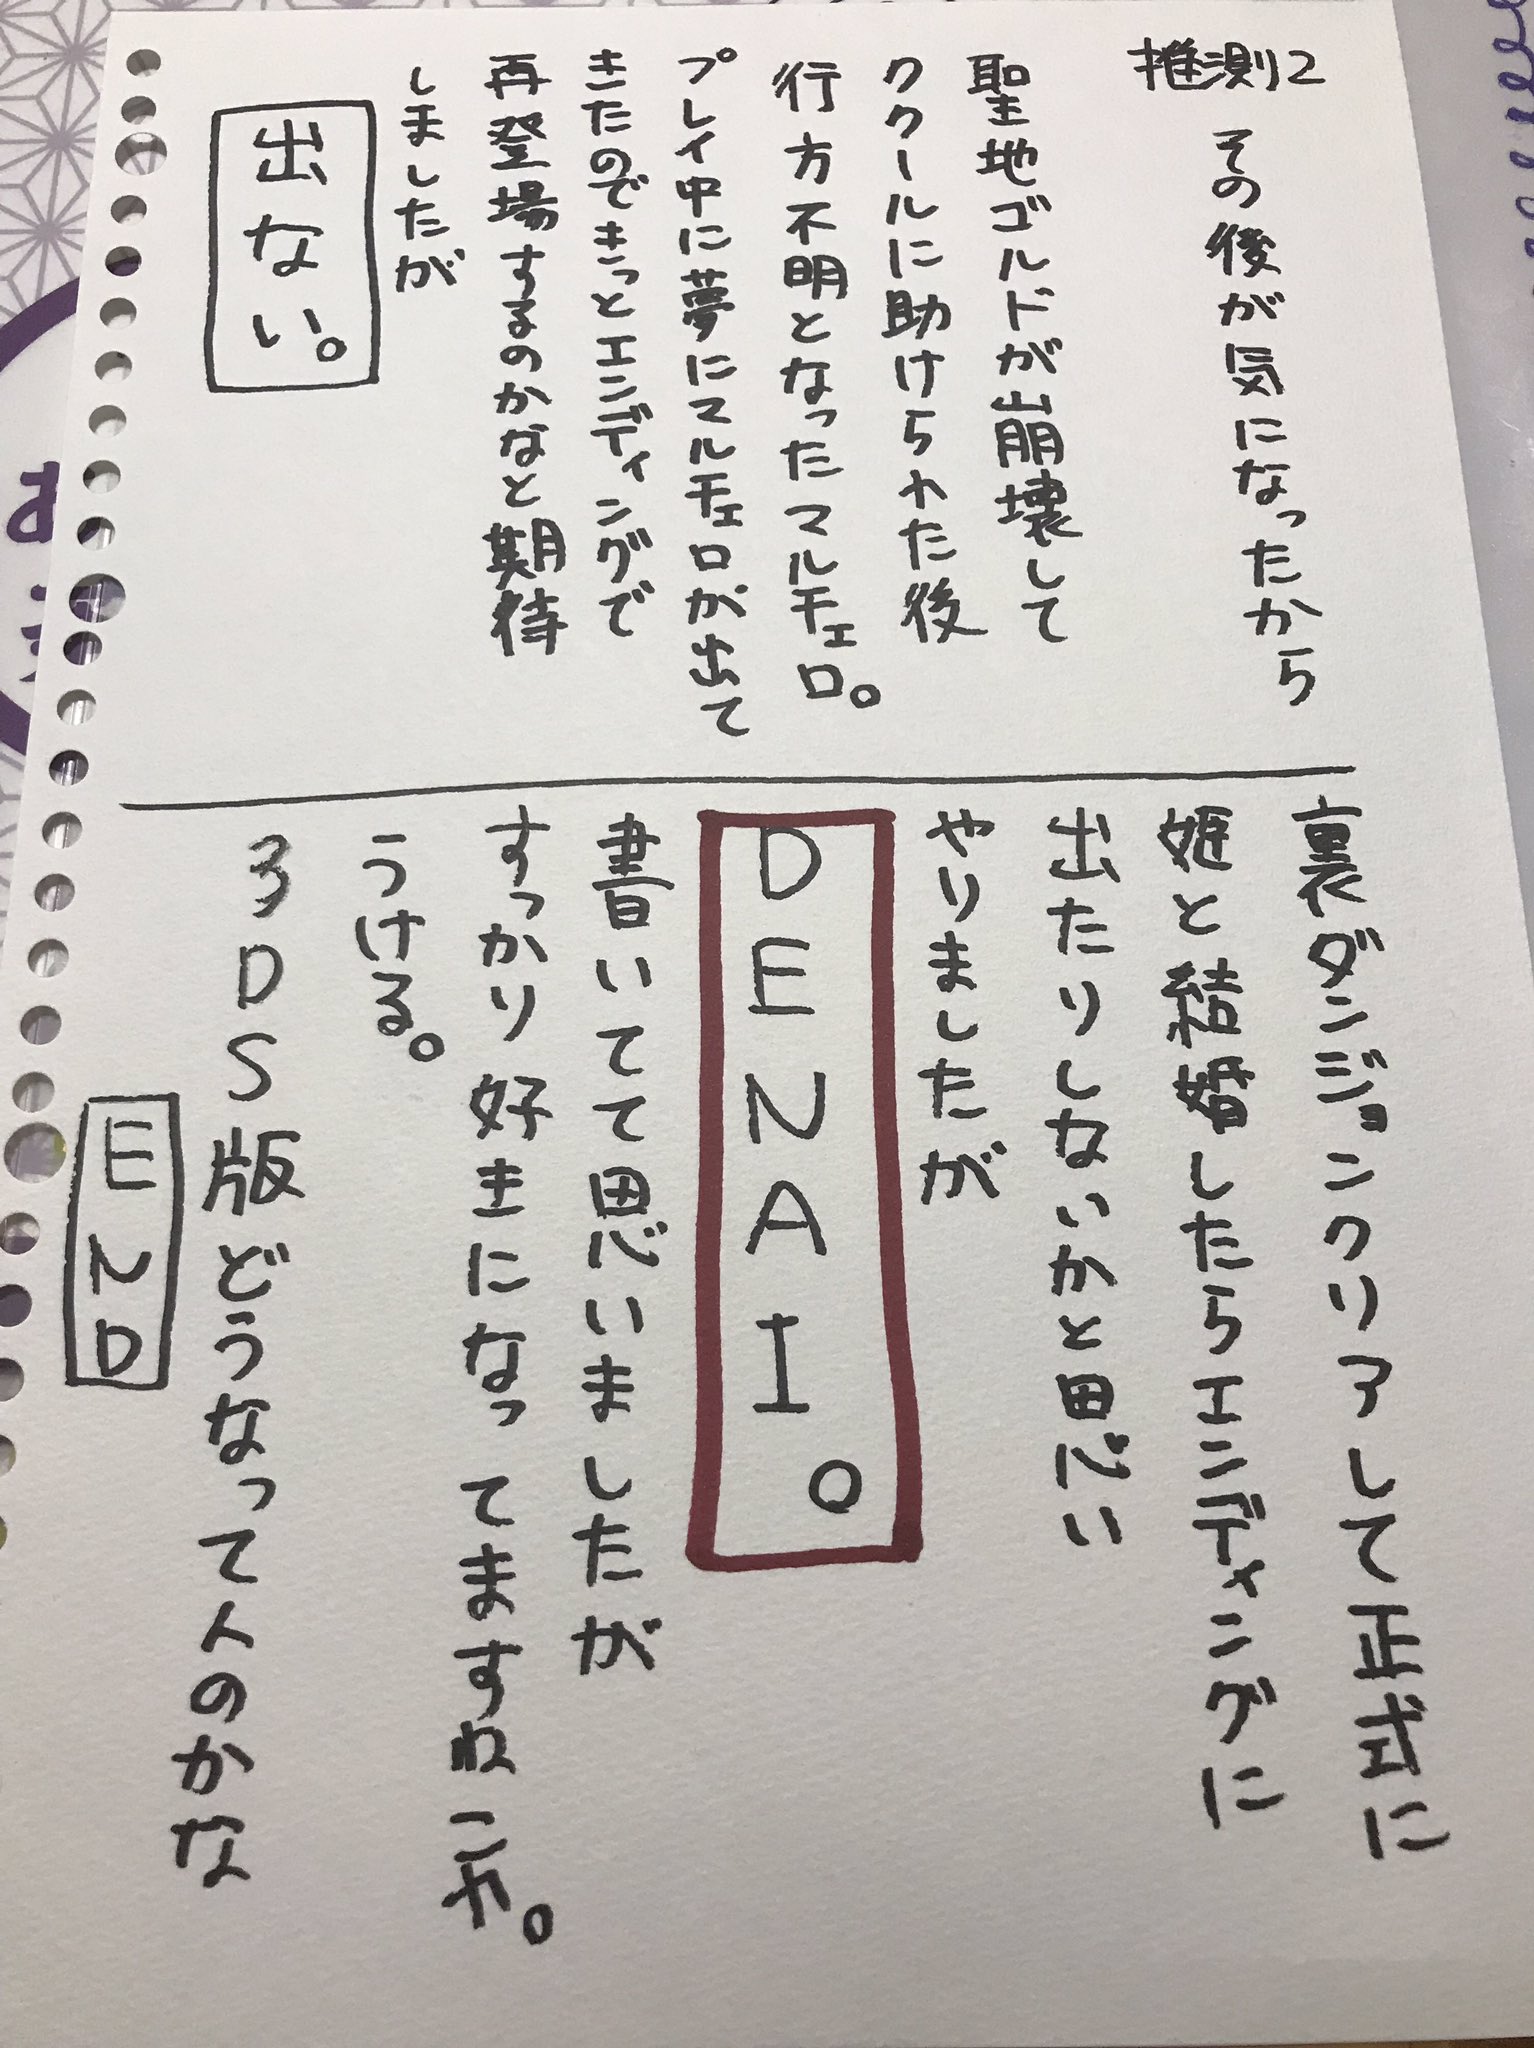 推測2
その後が気になったから
聖地ゴルドが崩壊して
ククールに助けられた後
行方不明となったマルチェロ。
プレイ中に夢にマルチェロが出て
きたのできっとエンディングで
再登場するのかなと期待
しましたが
出ない。
裏ダンジョンクリアして正式に
姫と結婚したらエンディングに
出たりしないかと思い
やりましたが
DENAI。
書いてて思いましたが
すっかり好きになってますねこれ。
うける。
3DS版どうなって人のかな
END